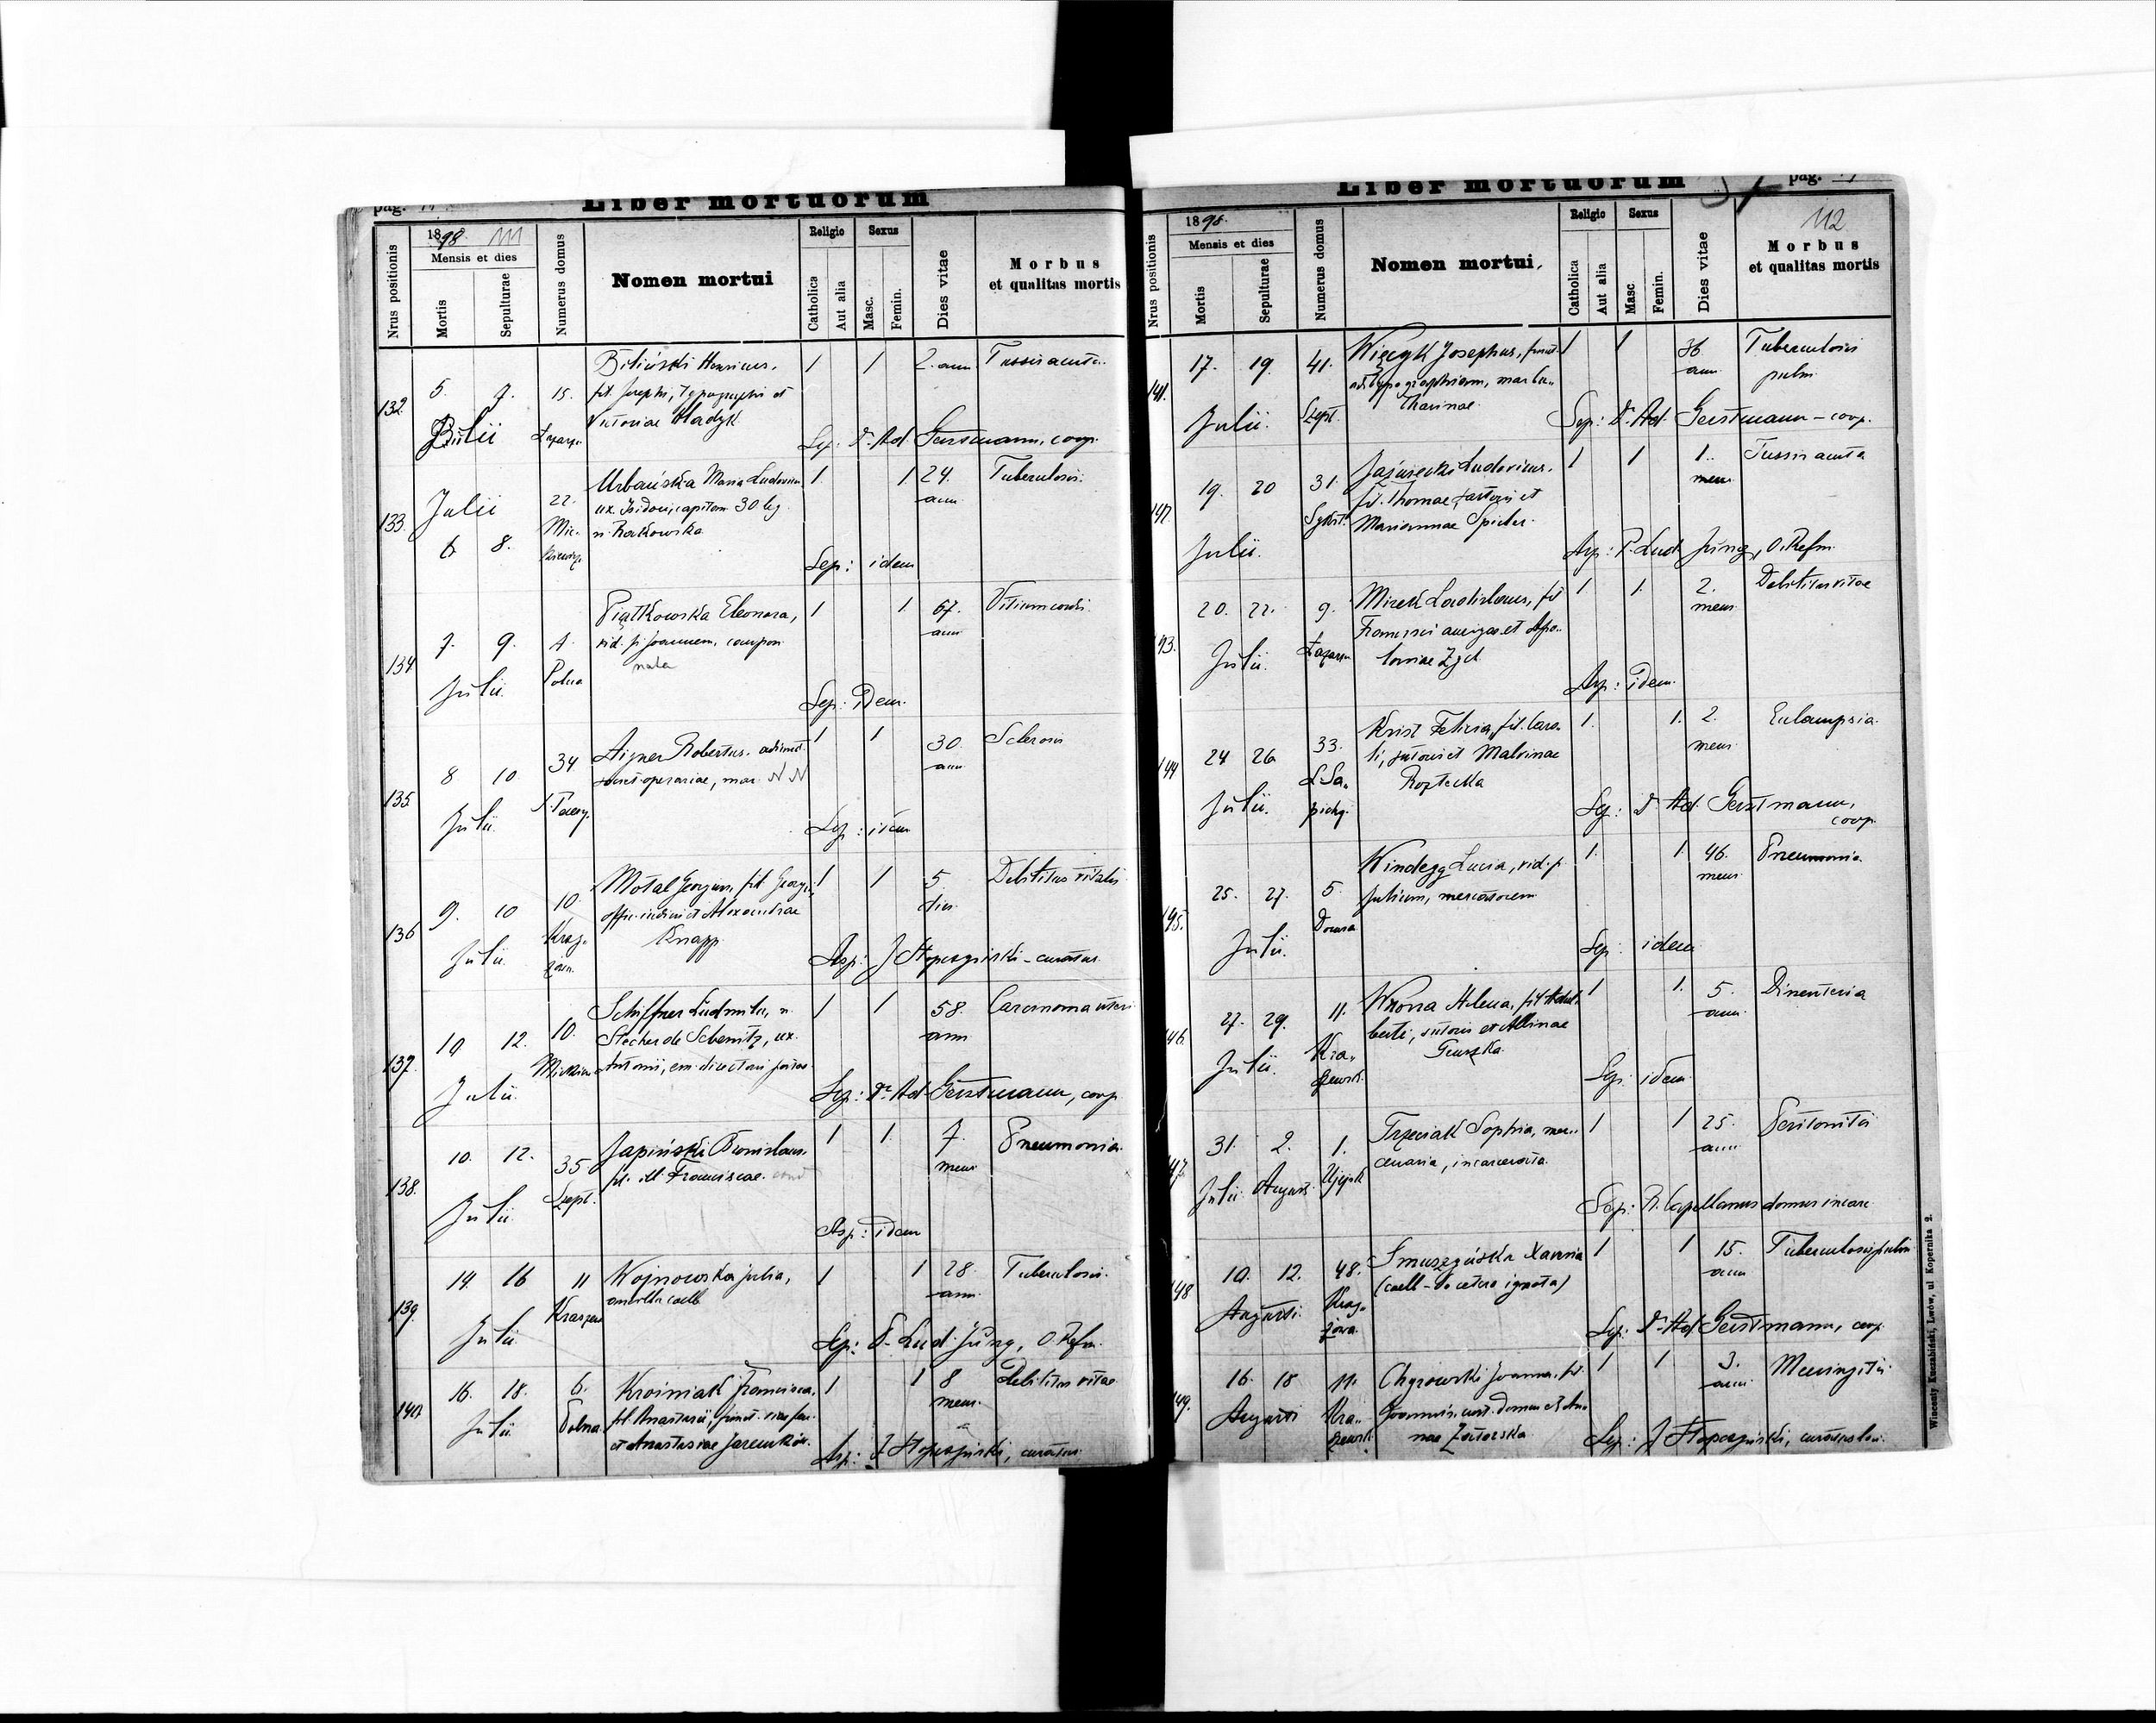 pag.
Liber mortuorum
Nrus positionis
1898. 111
Mensis et dies
Mortis
Sepulturae
Numerus domus
Nomen mortui
Religio
Catholica
Aut alia
Sexus
Masc.
Femin.
Dies vitae
Morbus
et qualitas mortis
132
5. 7. 15.
Julii
Biliński Henricus,
fil. Josephi, typographi et
Victoriae Hladyk
1 1 2. ann. Tussis acuta
Sep: Dr. Ad. Gerstmann, coop.
133.
Julii
6. 8. 22.
Mic-
kiewicz.
Urbańska Maria Ludovica
ux. Isidori, capitan. 30 leg.
n. Ratkowska
1 1 24. ann. Tuberculosis.
Sep: idem
134
7. 9. 4.
Julii. Polna
Piątkowska Eleonora,
vid. p. Joannem,
nata
1 1 67. ann. Vitium cordis.
Sep: Idem.
135
8 10 34
Julii
Aigner Robertus.
mar. N N
1 1 30. ann. Sclerosis
Sep: idem
136
9. 10 10.
Julii. Krag.
Motal Georgius, fil. Georgii,
et Alexandrae
Knapp.
1 1 5 dies Debilitas vitalis
Asp: J Stopczyński - curatus
137.
10 12. 10.
Julii.
Schiffner Ludmila, n.
Stecher de Sebenitz, ux.
Antonii, em. directori
1 1 58. ann Carcinoma uteri
Sep: Dr. Ad. Gerstmann, coop
138.
10. 12. 35
Julii. Szept.
Japiński Bronislaus.
fil. ill. Franciscae.
1 1. 7. mens. Pneumonia.
Asp: idem
139.
14. 16 11
Julii Kraszew
Wojnowska Julia,
ancilla caelb.
1 1 28. ann. Tuberculosis.
Sep: P. Lud. Jung, O. Refm.
140.
16. 18. 6.
Julii Polna.
Kroiniak Francisca,
fil. Anastasii,
et Anastasiae
1 1 8 mens. Debilitas vitae
Asp: J Stopczyński, curatus.
Liber mortuorum
pag.
Nrus positionis
1898.
Mensis et dies
Mortis
Sepulturae
Numerus domus
Nomen mortui,
Religio
Catholica
Aut alia
Sexus
Masc
Femin.
Dies vitae
112
Morbus
et qualitas mortis
141.
17. 19. 41.
Julii. Szept.
Więcyk Josephus, funct.
ad typographiam, mar. Ca-
tharinae.
1 1 36 ann. Tuberculosis
pulm.
Sep: Dr. Ad. Gerstmann - coop.
142.
19. 20 31.
Julii. Sykst.
Ludovicus,
fil. Thomae et
Mariannae Spicker.
1 1 1. mens. Tussis acuta
Asp: P. Lud Jung, O. Refm.
143.
20. 22. 9.
Julii.
Mirek Ladislaus, fil
Francisci aurigae et Apo-
loniae Zgel.
1 1. 2. mens. Debilitas vitae
Asp: idem.
144
24 26 33.
Julii. L. Sa-
piehy.
Krist Felicia, fil. Caro-
li, sutoris et Malvinae
1. 1. 2. mens. Eclampsia.
Sep: Dr. Ad. Gerstmann,
coop.
145.
25. 27. 5.
Julii.
Windegg Lucia, vid. p.
Julium, mercatorem
1. 1. 46. mens. Pneumonia.
Sep: idem
146.
27. 29. 11.
Julii. Kra-
szewsk.
Wrona Helena, fil Adal-
berti, sutoris et Albinae
1 1. 5. ann. Disenteria
Sep: idem.
147.
31. 2. 1.
Julii. Augusti. Ujejsk.
Trzeciak Sophia, mer-
cenaria, incarcerata.
1 1 25. ann. Peritonitis
Sep: R. Capellanus domus incarc
148
10. 12. 48.
Augusti.
Smuszyńska Xaveria
(caelb - de cetero ignota)
1 1 15. ann Tuberculosis pulm.
Sep: Dr. Ad Gerstmann, coop.
149.
16. 18 11.
Augusti Kra-
szewsk.
Chyrowski Joannes, fil.
Joannis, cust. domus et An-
nae
1 1 3. ann. Meningitis
Sep: J Stopczyński, curatus loci.
Wincenty Kuczabiński, Lwów, ul Kopernika 2.